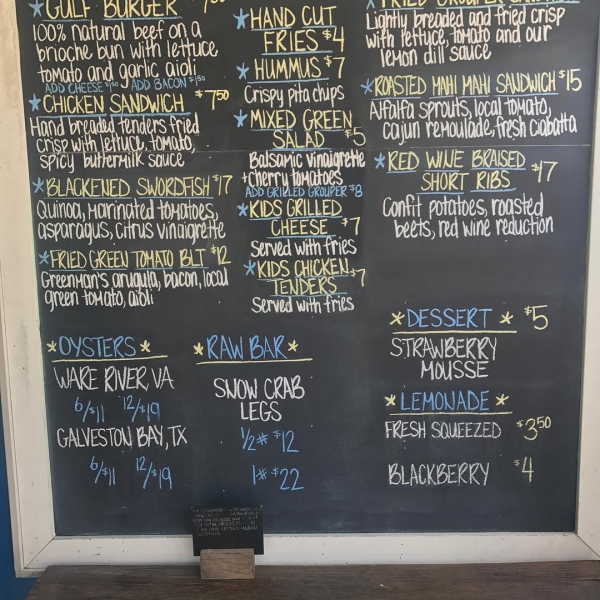 *GULF BURGER
100% natural beef on a
brioche bun with lettuce,
tomato and garlic aioli
ADD CHEESE $1.00 ADD BACON $1.50
*CHICKEN SANDWICH $7.50
Hand breaded tenders fried
crisp with lettuce, tomato,
spicy buttermilk sauce
*BLACKENED SWORDFISH $17
Quinoa, marinated tomatoes,
asparagus, citrus vinaigrette
*FRIED GREEN TOMATO BLT $12
Greenman's arugula, bacon, local
green tomato, aioli
*HAND CUT
FRIES $4
*HUMMUS $7
Crispy pita chips
*MIXED GREEN
SALAD $5
Balsamic vinaigrette
+cherry tomatoes
ADD GRILLED GROUPER $8
*KIDS GRILLED
CHEESE $7
served with fries
*KIDS CHICKEN
TENDERS $7
Served with fries
*FRIED GROUPER
Lightly breaded and fried crisp
with lettuce, tomato and our
lemon dill sauce
*ROASTED MAHI MAHI SANDWICH $15
Alfalfa sprouts, local tomato,
cajun remoulade, fresh ciabatta
*RED WINE BRAISED
SHORT RIBS $17
Confit potatoes, roasted
beets, red wine reduction
*OYSTERS*
WARE RIVER, VA
6/$11 12/$19
GALVESTON BAY, TX
6/$11 12/$19
*RAW BAR*
SNOW CRAB
LEGS
1/2# $12
1# $22
*DESSERT* $5
STRAWBERRY
MOUSSE
*LEMONADE*
FRESH SQUEEZED $3.50
BLACKBERRY $4